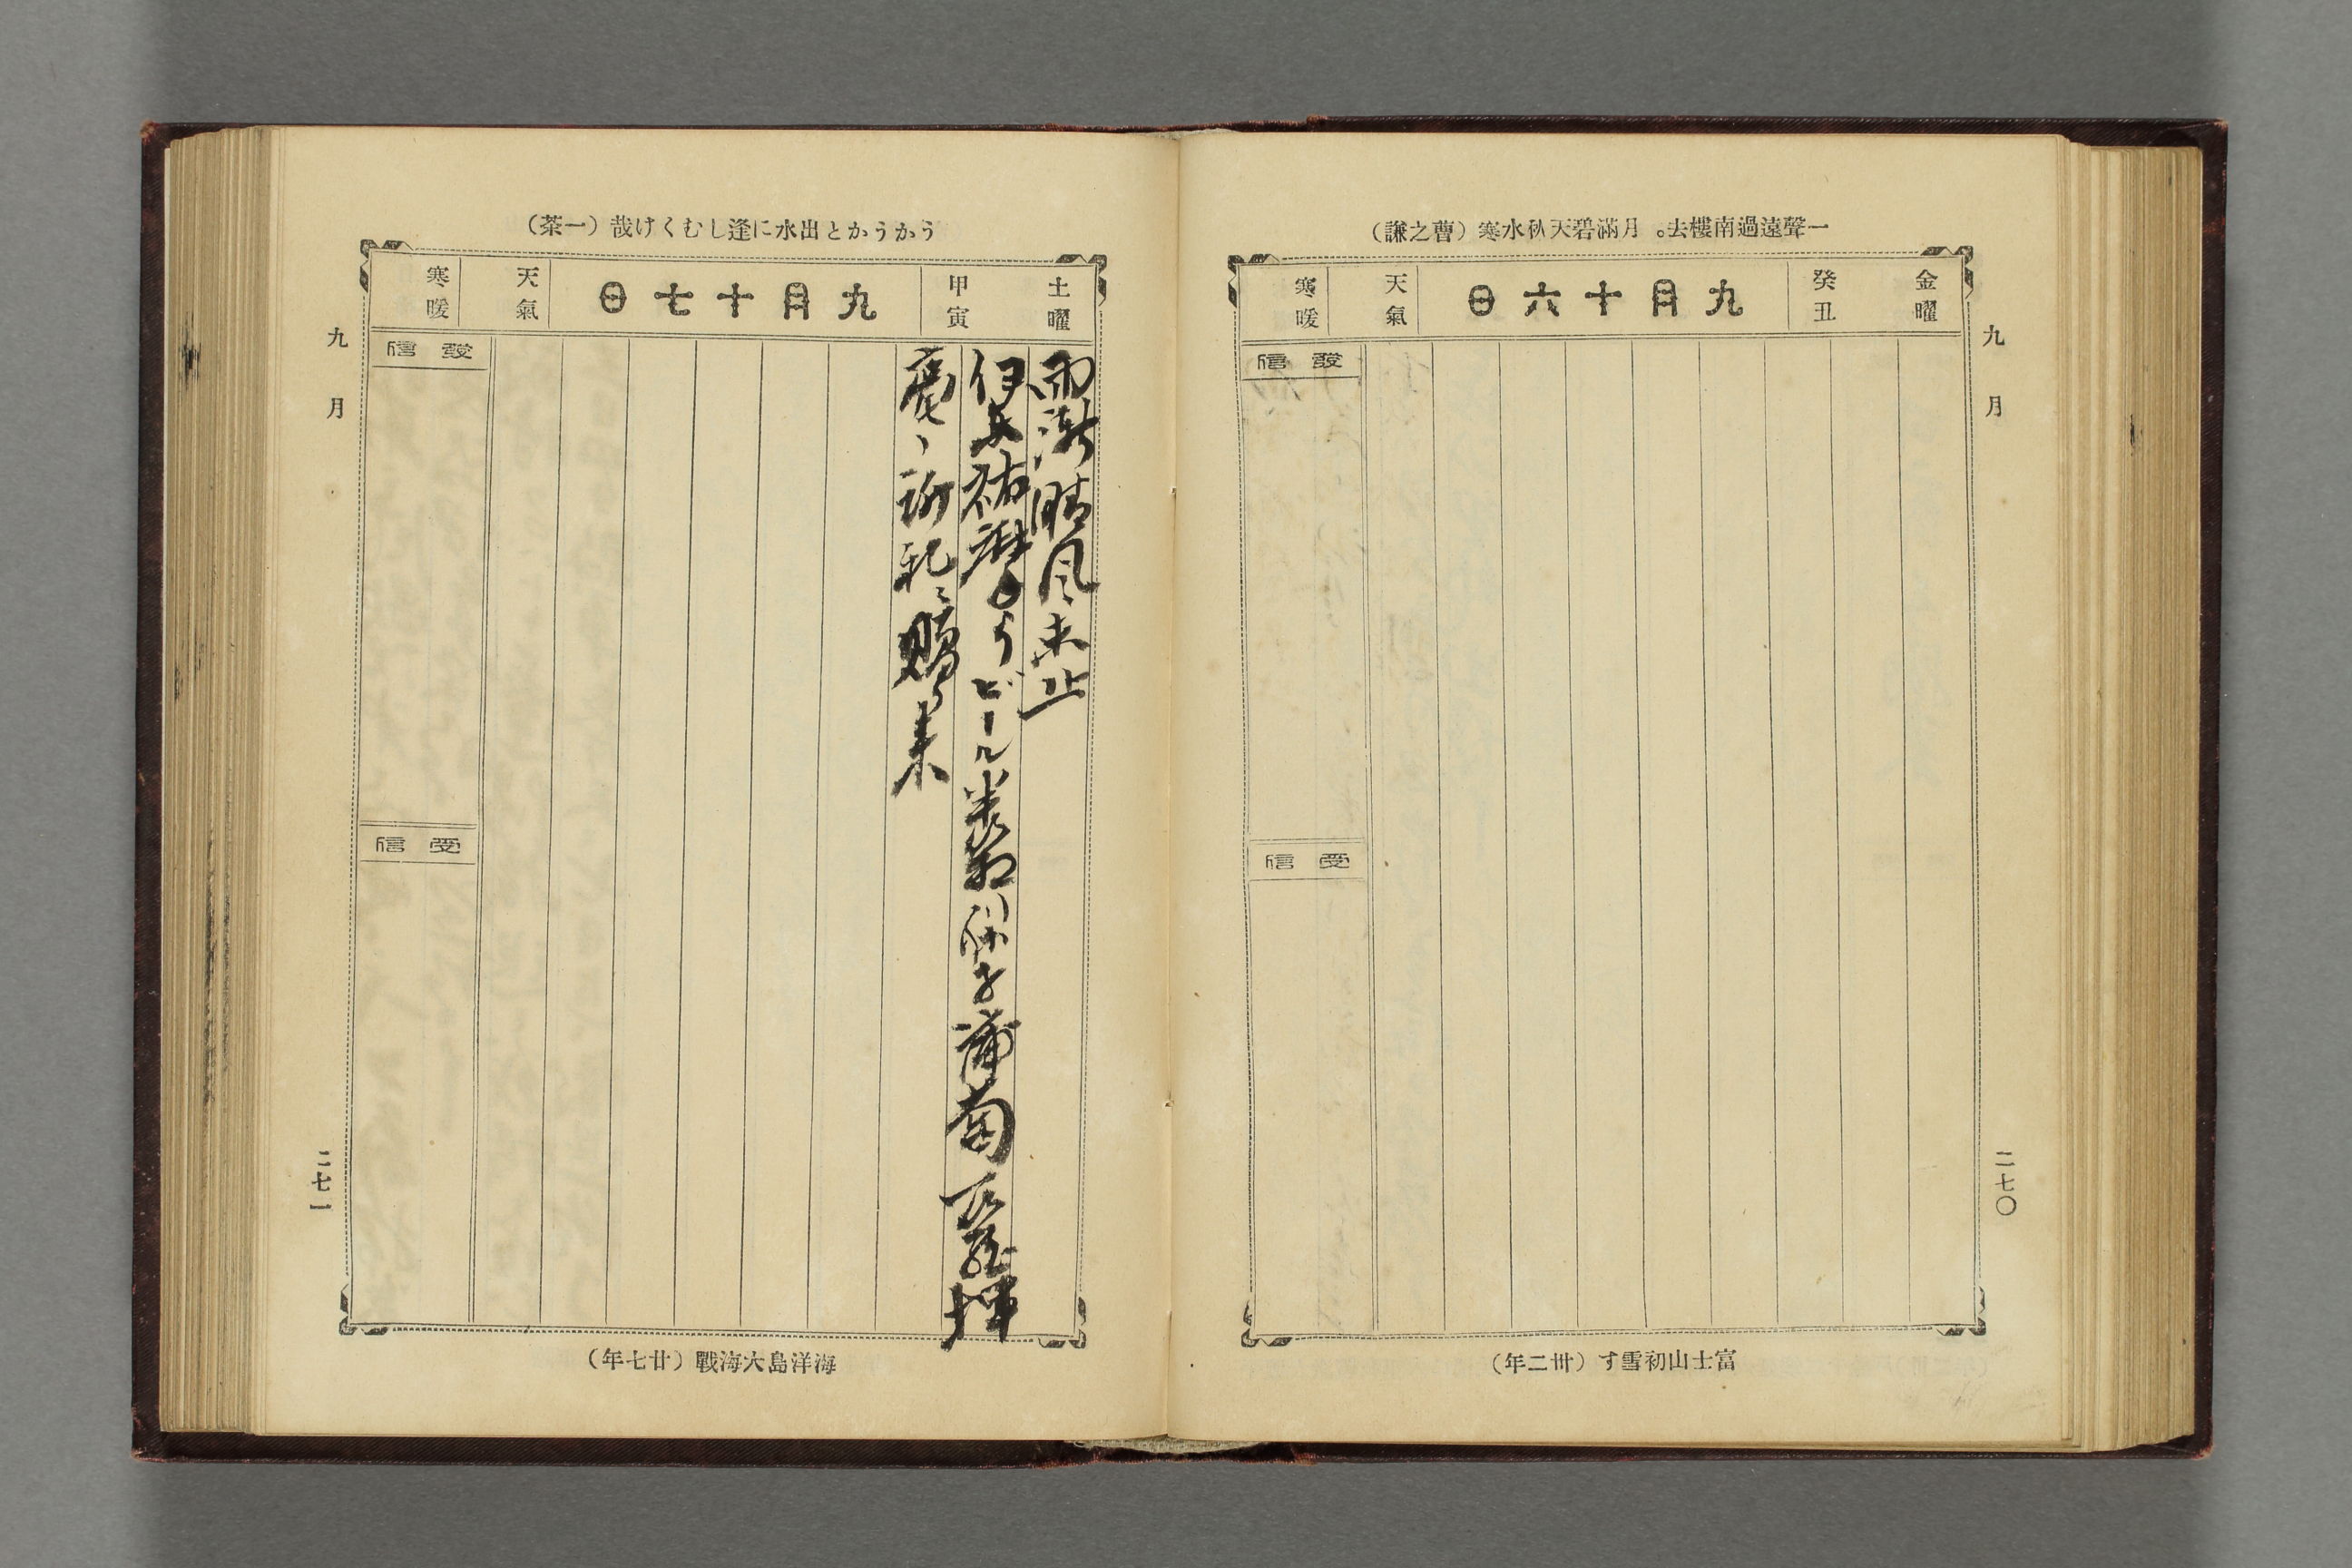 一聲遠過南樓去。月滿碧天秋水寒（曹之謙）
金曜
癸丑
九月十六日
天氣
寒暖
發信
受信
九月
二七〇
富士山初雪す（卅二年）
うかうかと出水に逢しむくげ哉（一茶）
土曜
甲寅
九月十七日
天氣
寒暖
雨漸晴風未止
伊 祐 よりビール半 葡萄
謝 来
發信
受信
九月
二七一
海洋島大海戰（廿七年）